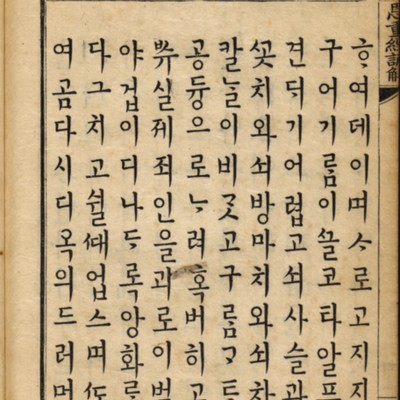 恩重經諺解
ᄒᆞ여데이며ᄉᆞ로고지지
구어기름이ᄭᅳᆯ코타알프
견ᄃᆡ기어렵고쇠사슬과
ᄭᅩᆺ치와쇠방마치와쇠차
칼ᄂᆞᆯ이비ᄀᆞᆺ고구름ᄀᆞ
공듕으로ᄂᆞ려혹버히고
실제죄인을괴로이벌
야겁이디나ᄃᆞ록앙화ᄅᆞᆯ
다그치고쉴ᄣᅢ업스며ᄯᅩ
여곰다시디옥의드러머